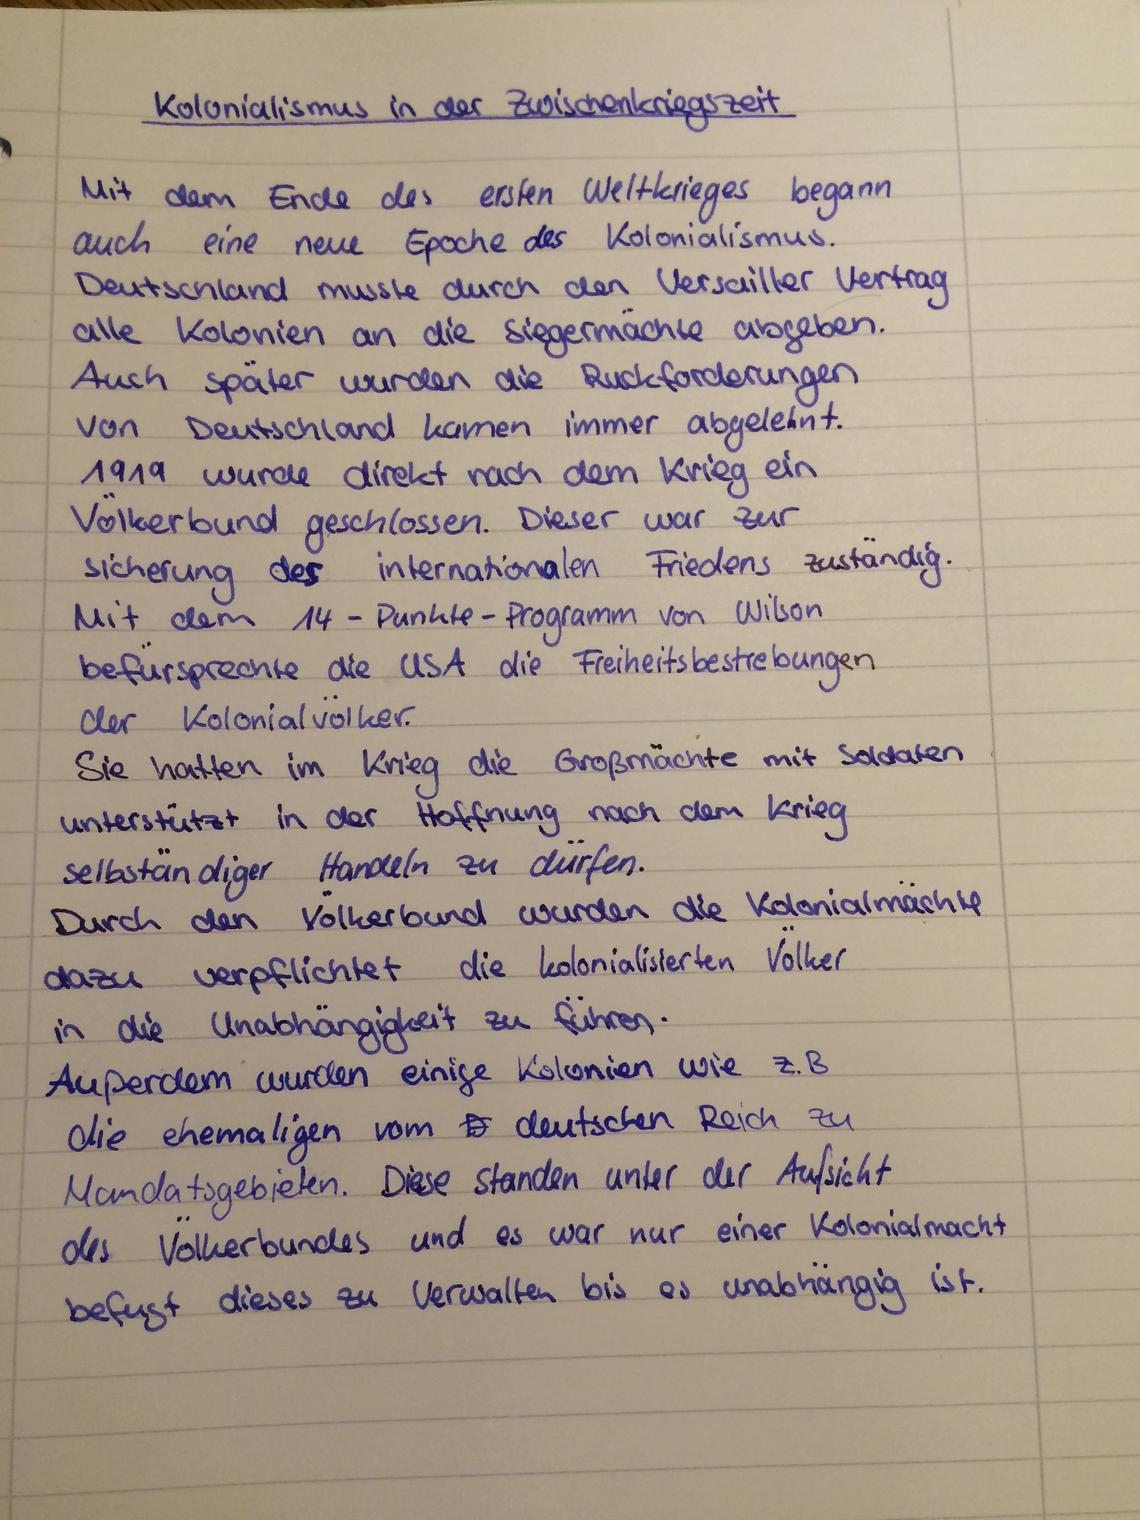 Kolonialismus in der Zwischenkriegszeit
Mit dem Ende des ersten Weltkrieges begann
auch eine neue Epoche des Kolonialismus.
Deutschland musste durch den Versailler Vertrag
alle Kolonien an die Siegermächte abgeben.
Auch später wurden die Ruckforderungen
von Deutschland kamen immer abgelehnt.
1919 wurde direkt nach dem Krieg ein
Völkerbund geschlossen. Dieser war zur
sicherung des internationalen Friedens zuständig.
Mit dem 14-Punkte-Programm von Wilson
befürsprechte die USA die Freiheitsbestrebungen
der Kolonialvölker.
Sie hatten im Krieg die Großmächte mit Soldaten
unterstützt in der Hoffnung nach dem Krieg
selbständiger Handeln zu dürfen.
Durch den Völkerbund wurden die Kolonialmächte
dazu verpflichtet die kolonialisierten Völker
in die Unabhängigkeit zu führen.
Außerdem wurden einige Kolonien wie z.B
die ehemaligen vom deutschen Reich zu
Mandatsgebieten. Diese standen unter der Aufsicht
des Völkerbundes und es war nur einer Kolonialmacht
befugt dieses zu Verwalten bis es unabhängig ist.